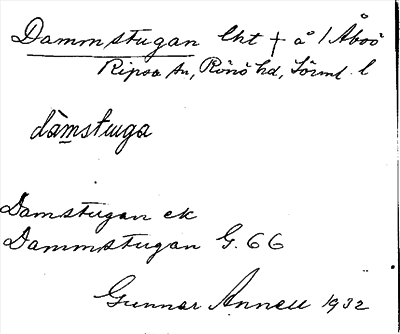 Dammstugan lht † å /Åboö
Ripsa sn, Rönö hd, Sörml. l
dàmstuga
Damstugan ek
Dammstugan G. 66
Gunnar Annell 1932